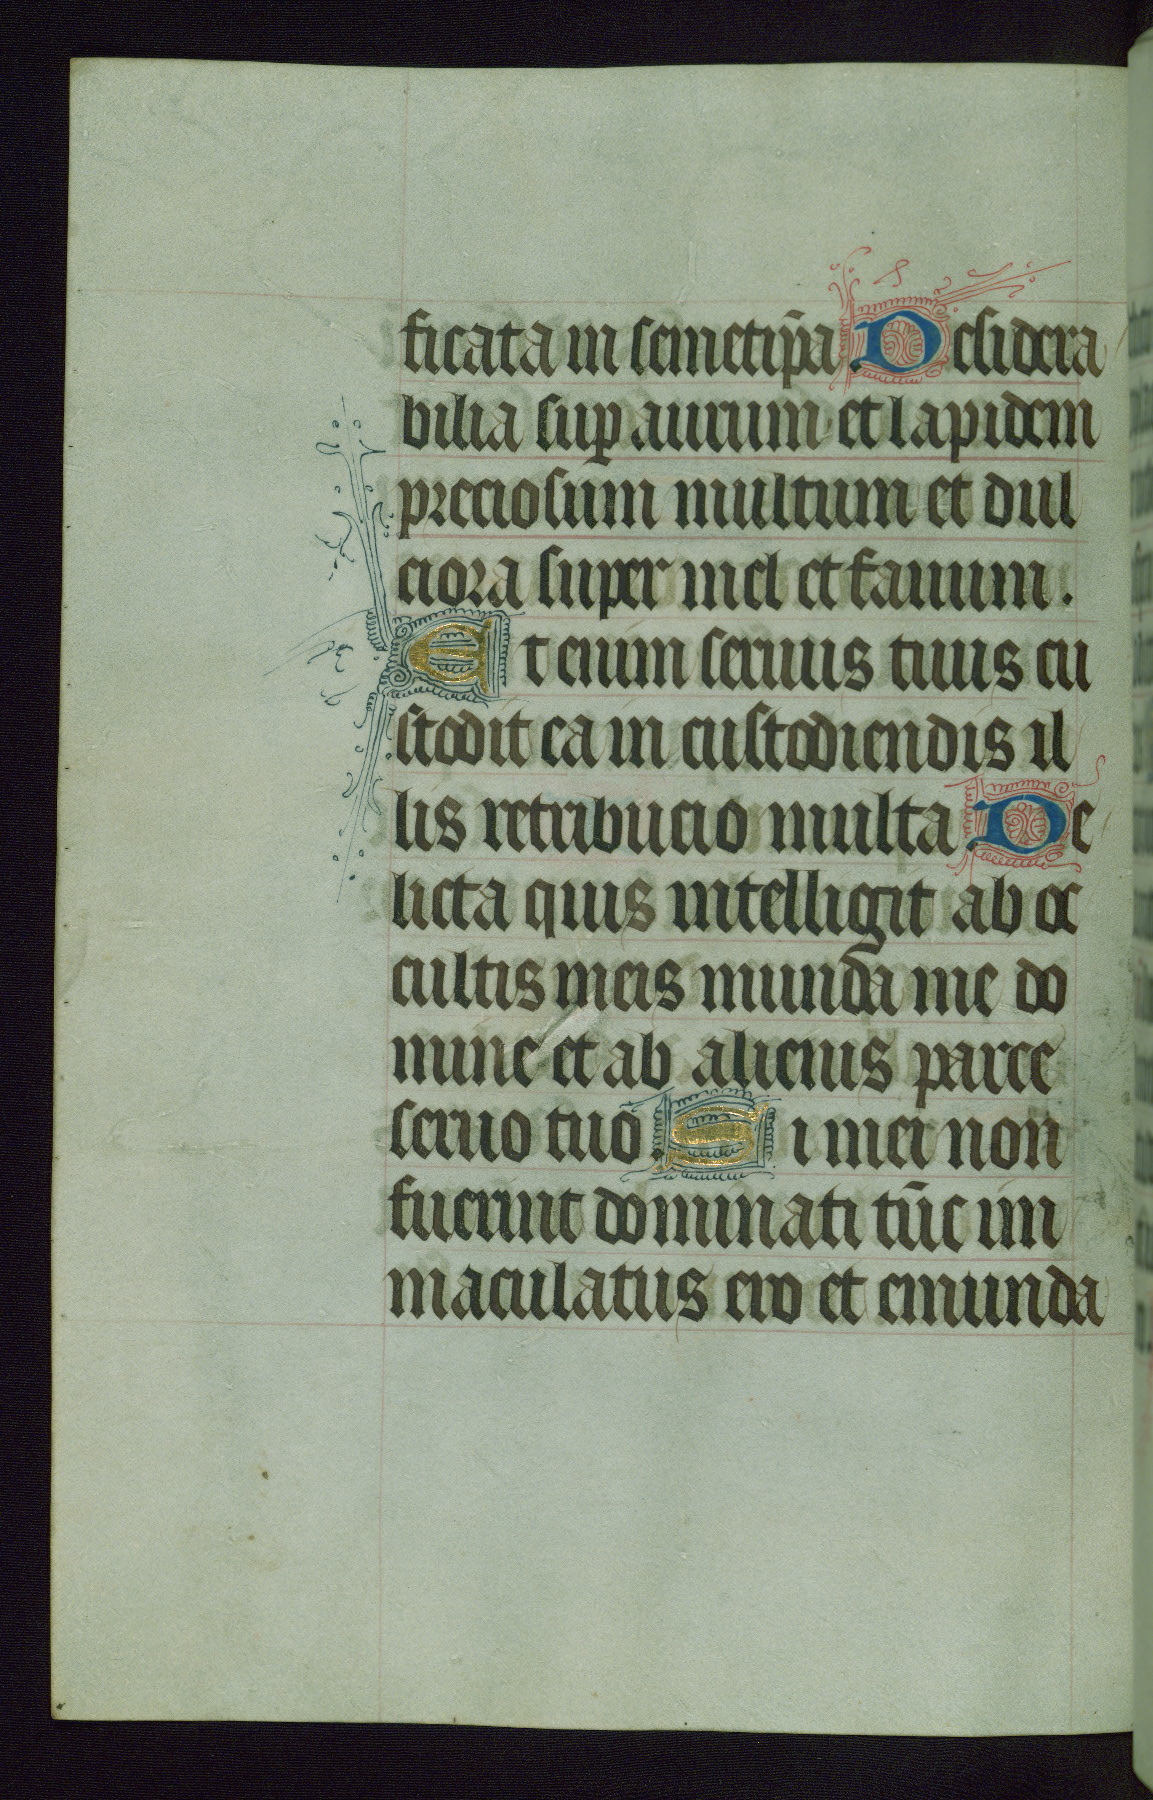 ficata in semetip̄a Desidera
bilia sup̱ aurum et lapidem
preciosum multum et dul
ciora super mel et fauum.
Et enim seruus tuus cu
stodit ea in custodiendis il
lis retribucio multa. De
licta quis intelligit ab oc
cultis meis munda me do
mine et ab alienis parce
seruo tuo. Si mei non
fuerint dominati tūc im
maculatus ero et emunda